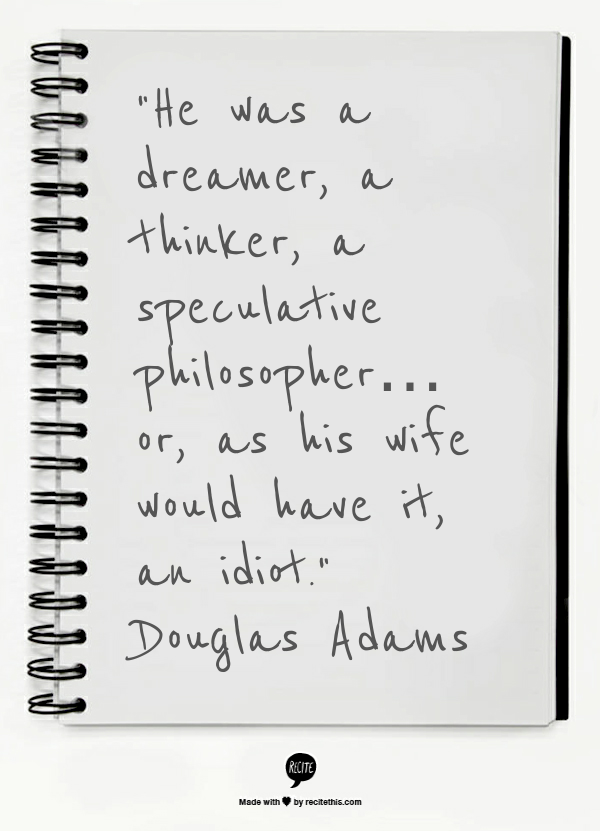 "He was a
dreamer, a
thinker, a
speculative
philosopher...
or, as his wife
would have it,
an idiot."
Douglas Adams
RECITE
Made with ♥ by recitethis.com